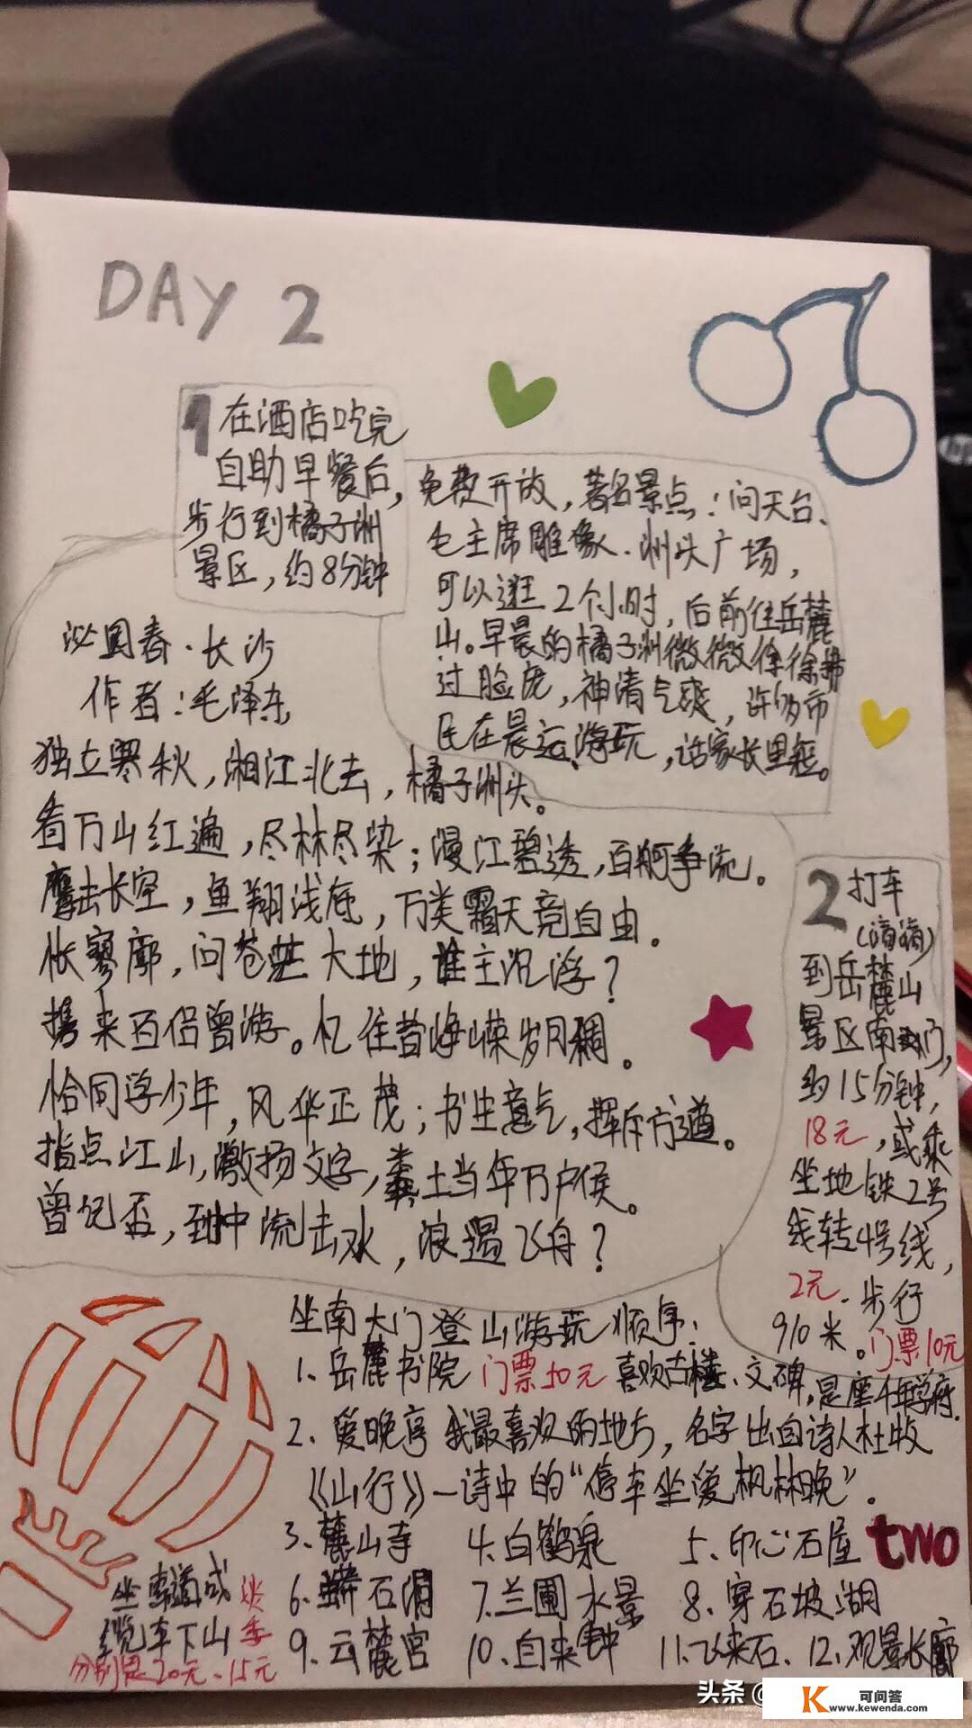 DAY 2
1 在酒店吃完
自助早餐后,
步行到橘子洲
景区,约8分钟
免费开放,著名景点:问天台、
毛主席雕像、洲头广场,
可以逛2个小时,后前往岳麓
山。早晨的橘子洲微微徐徐拂
过脸庞,神清气爽,许多市
民在晨运、游玩,话家长里短。
沁园春·长沙
作者:毛泽东
独立寒秋,湘江北去,橘子洲头。
看万山红遍,尽林尽染;漫江碧透,百舸争流。
鹰击长空,鱼翔浅底,万类霜天竞自由。
怅寥廓,问苍茫大地,谁主沉浮?
携来百侣曾游。忆往昔峥嵘岁月稠。
恰同学少年,风华正茂;书生意气,挥斥方遒。
指点江山,激扬文字,粪土当年万户侯。
曾记否,到中流击水,浪遏飞舟?
2 打车
(滴滴)
到岳麓山
景区南大门,
约15分钟,
18元,或乘
坐地铁2号
线转4号线,
2元.步行
910米。门票10元
坐南大门登山游玩顺序:
1、岳麓书院 门票50元 喜欢古楼、文碑,是座千年学府.
2、爱晚亭 我最喜欢的地方,名字出自诗人杜牧
《山行》一诗中的“停车坐爱枫林晚”。
3、麓山寺 4、白鹤泉 5、印心石屋 two
6、蟒石洞 7、兰圃水景 8、穿石坡湖
9、云麓宫 10、自来钟 11、飞来石、12、观景长廊
坐索道或
缆车下山
分别是20元、15元
头条 @
K 可问答
www.kewenda.com